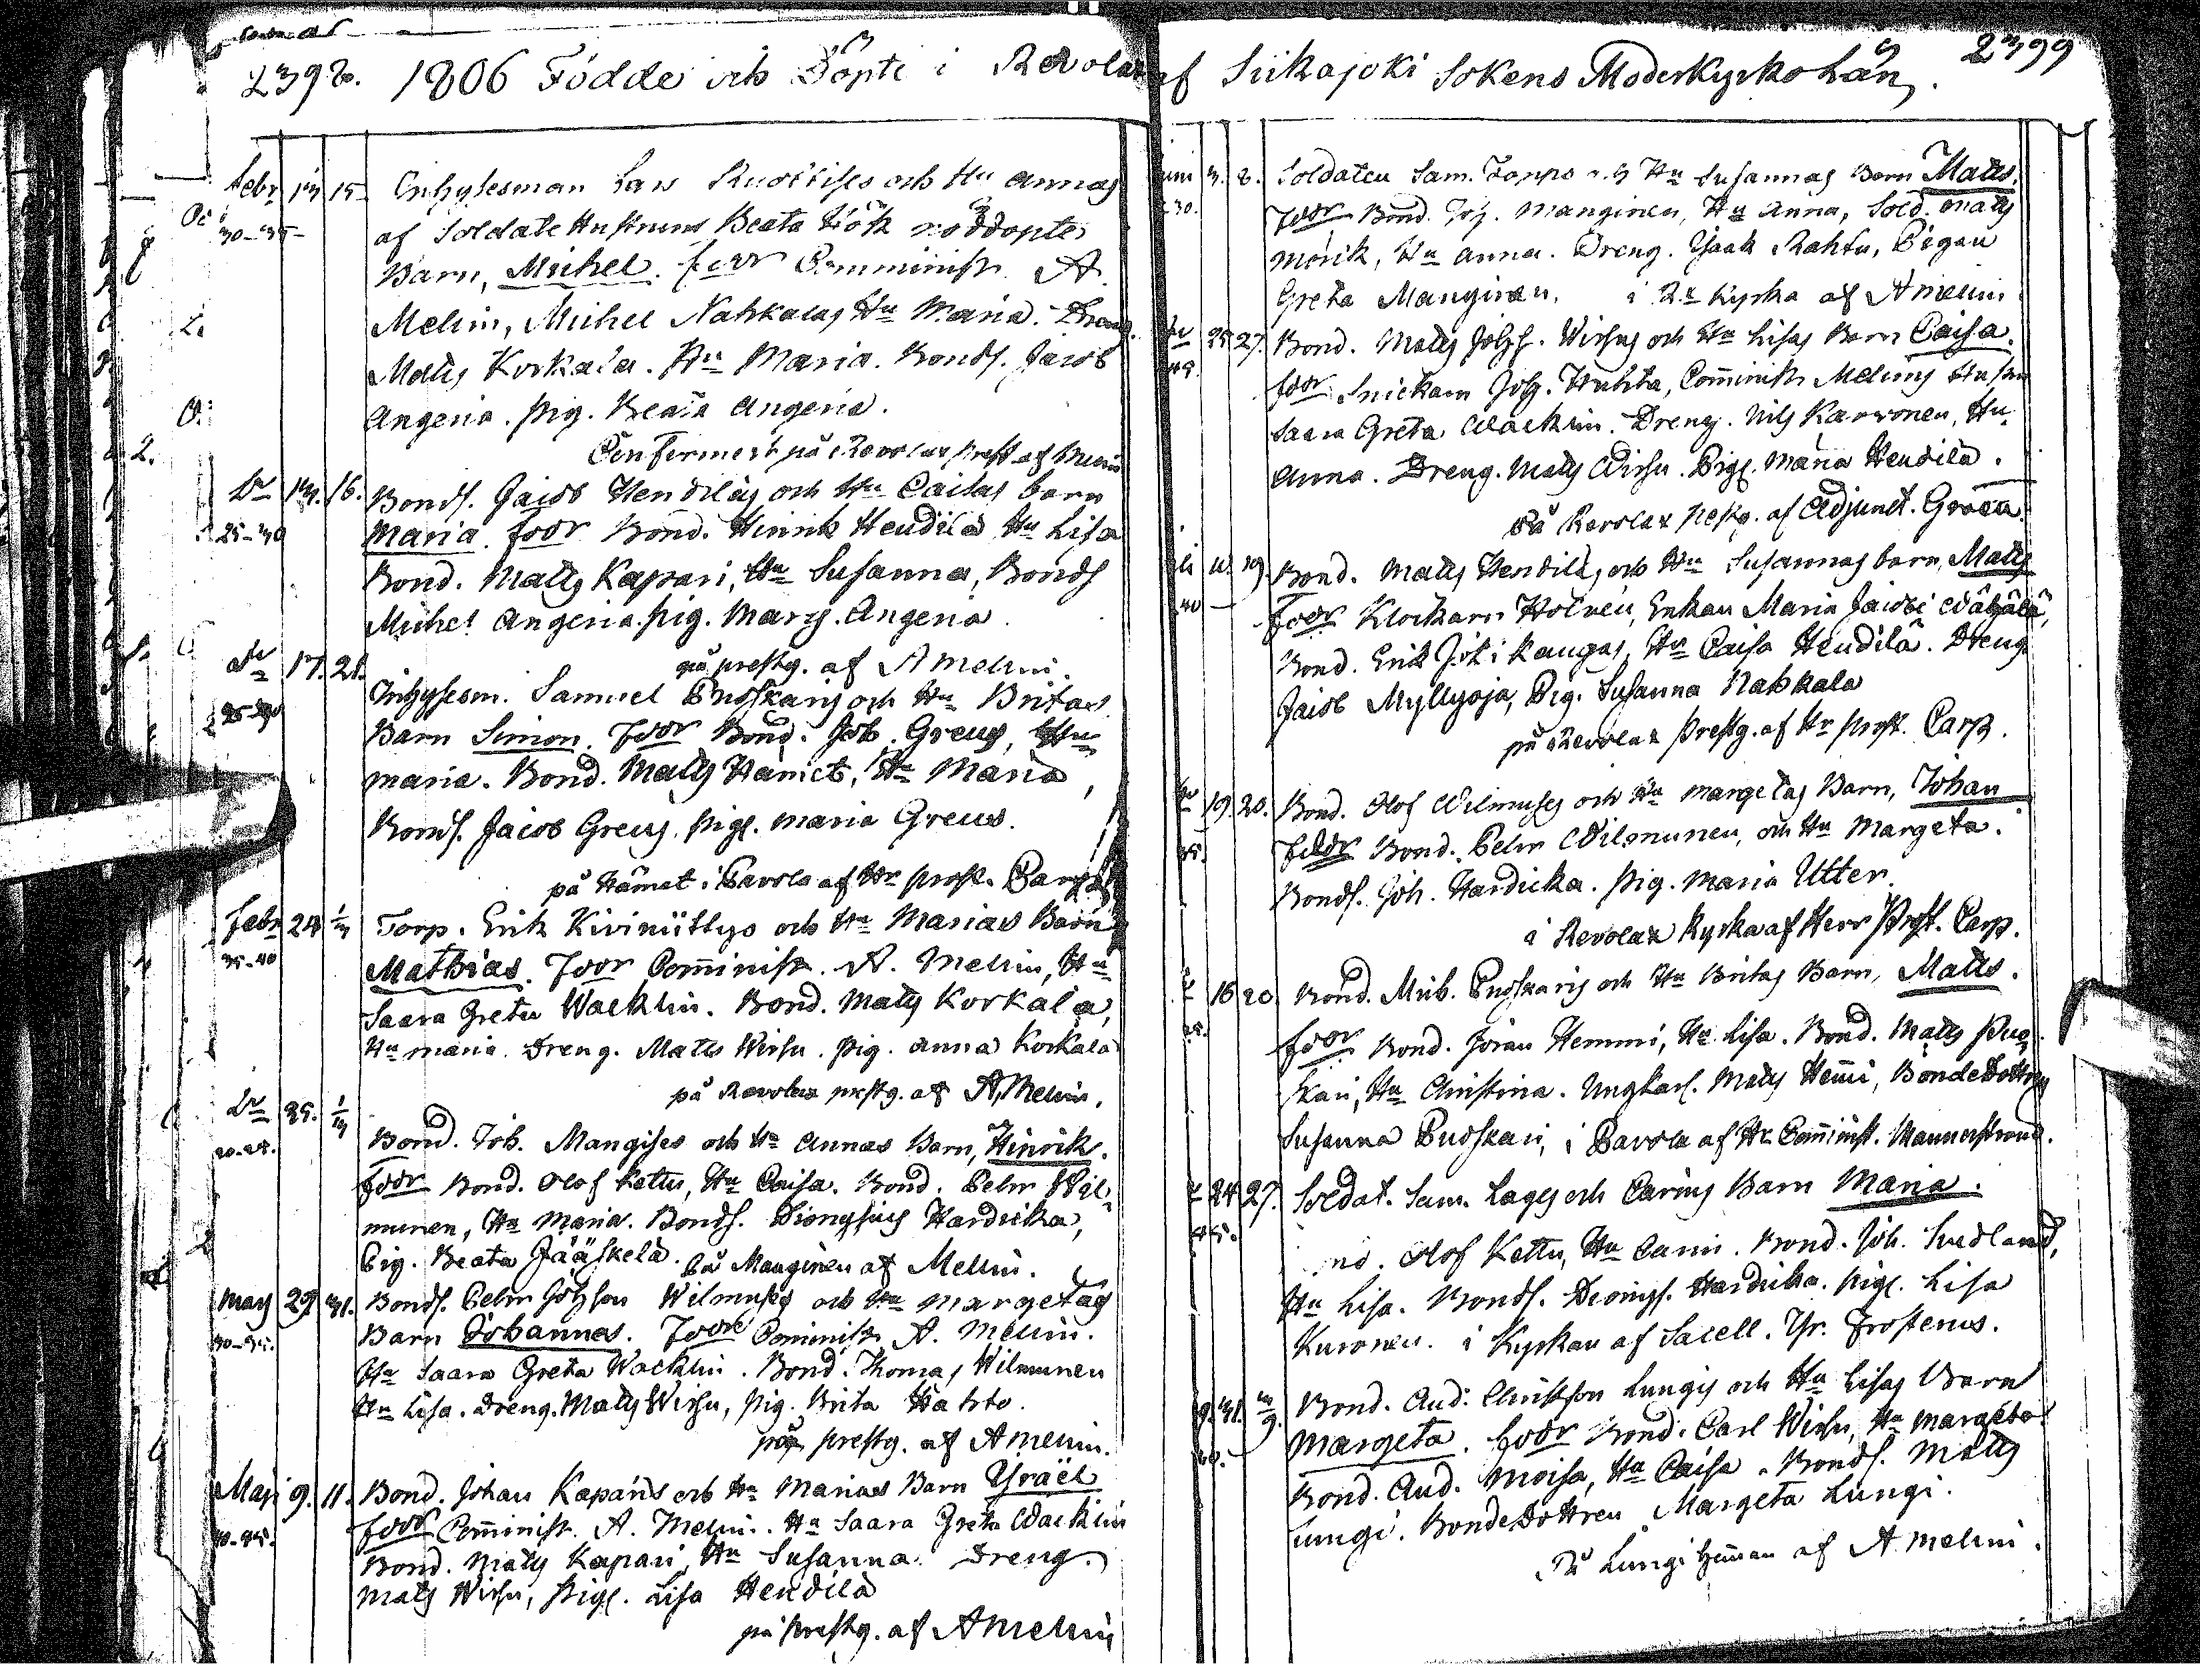 2398. 1806 Födde och Döpte i Revolax
Febr 13 15. Inhysesman Lars Ruottises och Hu Annas
30-35 af Soldate Hustruns Beata Höök nöddöpte
Barn, Michel. foor Comminist. A.
Melin, Michel Nahkalas Hu Maria. Dreng.
Matts Korkala. Hu Maria. Bonds. Jacob
Angeria. pig. Beata Angeria.
Confirmert på Revolax prestg af Melin
Do 13. 16. Bonds. Jacob Hendilas och Hu Caisas barn
25-30 Maria. foor Bond. Hinrik Hendila Hu Lisa
Bond. Matts Kapari, Hu Susanna, Bonds
Michel Angeria. pig. Marg. Angeria.
på prestg. af A Melin.
Do 17. 21. Inhysesm. Samuel Puskaris och Hu Britas
25-30 Barn Simon. foor Bond. Joh. Greus, Hu
Maria. Bond. Matts Hamet, Hu Maria,
Bonds. Jacob Greus, pig. Maria Greus.
på Hämet i Pavola af Hr prost. Carp
Febr 24 1/3 Torp. Erik Kiviniittys och Hu Marias Barn
35-40 Mathias. foor Comminist. A. Melin, Hu
Saara Greta Wacklin. Bond. Matts Korkala,
Hu Maria. Dreng. Matts Wirsu. pig. Anna Korkala
på Revolax prestg. af A, Melin.
Do 25. 1/3 Bond. Joh. Mangises och Hu Annas Barn, Hinrik.
foor Bond. Olof Kettu, Hu Caisa. Bond. Pehr Wil-
munen, Hu Maria. Bonds. Dionysius Hardicka,
Pig. Beata Jääskelä. på Manginen af Melin.
May 29 31. Bonds. Pehr Johsson Wilmusis och Hu Margetas
30-35. Barn Johannes. foor Comminist. A. Melin.
Hu Saara Greta Wacklin. Bond. Thomas Wilmunen
Hu Lisa. Dreng. Matts Wirsu, pig. Brita Hahto.
på prestg. af A Melin.
Maji 9. 11. Bond. Johan Kaparis och Hu Marias Barn Ysräel
foor Comminist. A. Melin. Hu Saara Greta Wacklin
Bond. Matts Kapari, Hu Susanna. Dreng.
Matts Wirsu, pig. Lisa Hendila
på prestg. af A Melin
af Siikajoki Sokens Moderkyrko Län. 2399
3. 8. Soldaten Sam. Toppo och Hu Susannas Barn Matts.
30. foor Bond. Joh. Manginen, Hu Anna, Sold. Matts
Mörik, Hu Anna. Dreng. Isaak Rahtu, Pigan
Greta Manginen. i Rx Kyrka af A Melin
25 27. Bond. Matts Johss. Wirsus och Hu Lisas Barn Caisa.
foor Snickarn Joh. Huhta, Comminist Melins Hustru
Saara Greta Wacklin. Dreng. Nils Karvonen, Hu
Anna. Dreng. Matts Wirsu. Pig. Maria Hendila.
på Revolax prestg. af Adjunct. Graan.
11. 19. Bond. Matts Hendilas och Hu Susannas barn, Matts
40 foor Klockarn Holmén, Enkan Maria Jacobi Wähälä,
Bond. Erik Jokikangas, Hu Caisa Hendilä. Dreng
Jacob Myllyoja, Pig. Susanna Nahkala
på Revolax Prestg. af Hr prost. Carp.
19. 20. Bond. Olof Wilmusis och Hu Margetas Barn, Johan
35. foor Bond. Pehr Wilmunen, och Hu Margeta.
Bonds. Joh. Hardicka. pig. Maria Utter.
i Revolax Kyrka af Herr Prost. Carp.
16 20. Bond. Mich. Puskaris och Hu Britas Barn, Matts.
foor Bond. Jöran Hemmi, Hu Lisa. Bond. Matts Pus-
kari, Hu Christina. Ungkarl. Matts Hemmi, Bondedottren
Susanna Puoskari, i Pavola af Hr Comminist. Mannerstrand.
24 27. Soldat. Sam. Lages och Carins Barn Maria.
Olof Kettu, Hu Carin. Bond. Joh. Svedland,
Hu Lisa. Bonds. Dionys. Hardicka. pig. Lisa
Kuronen. i Kyrkan af Sacell. Yr. Frosterus.
31. Bond. And: Erikson Lungis och Hu Lisas Barn
Margeta. foor Bond. Carl Wirsu, Hu Margeta
Bond. And. Moisa, Hu Caisa. Bonds. Matts
Lungi. Bondedottren Margeta Lungi.
På Lungi hemman af A Melin.